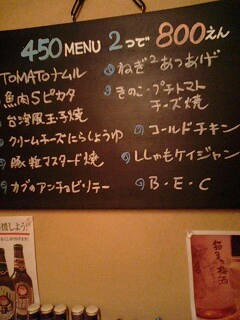 450 MENU 2つで 800えん
TOMATOナムル
魚肉Sピカタ
台湾風玉子焼
クリームチーズにらしょうゆ
豚軽マスタード焼
カブのアンチョビ・リテー
ねぎ2あつあげ
きのこ・プチトマト
チーズ焼
コールドチキン
ししゃもケイジャン
B・E・C
梅酒